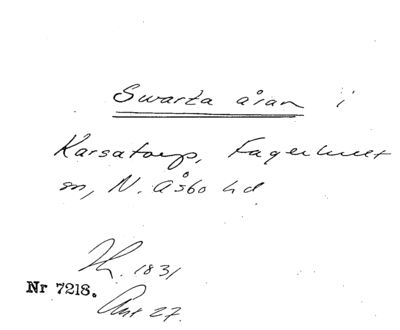 Swarta åran i
Karsatorp, Fagerhult
sn, N. Åsbo hd
1831
Nr 7218.
27.